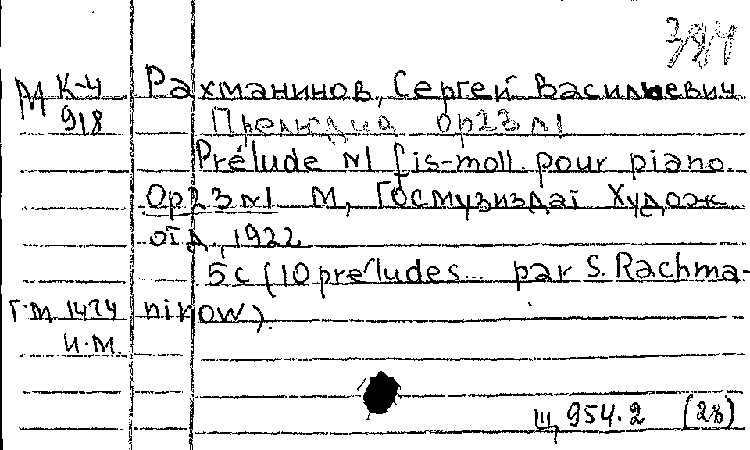 384
М К-4 Рахманинов, Сергей Васильевич
918 Прелюдия ор23 №1
Prélude №1 fis-moll. pour piano.
Ор23 №1 М, Госмузиздат Худож
отд., 1922
5с (10 préludes... par S. Rachma-
Г.М 1474 ninow).
И.М.
Щ 954.2 (28)